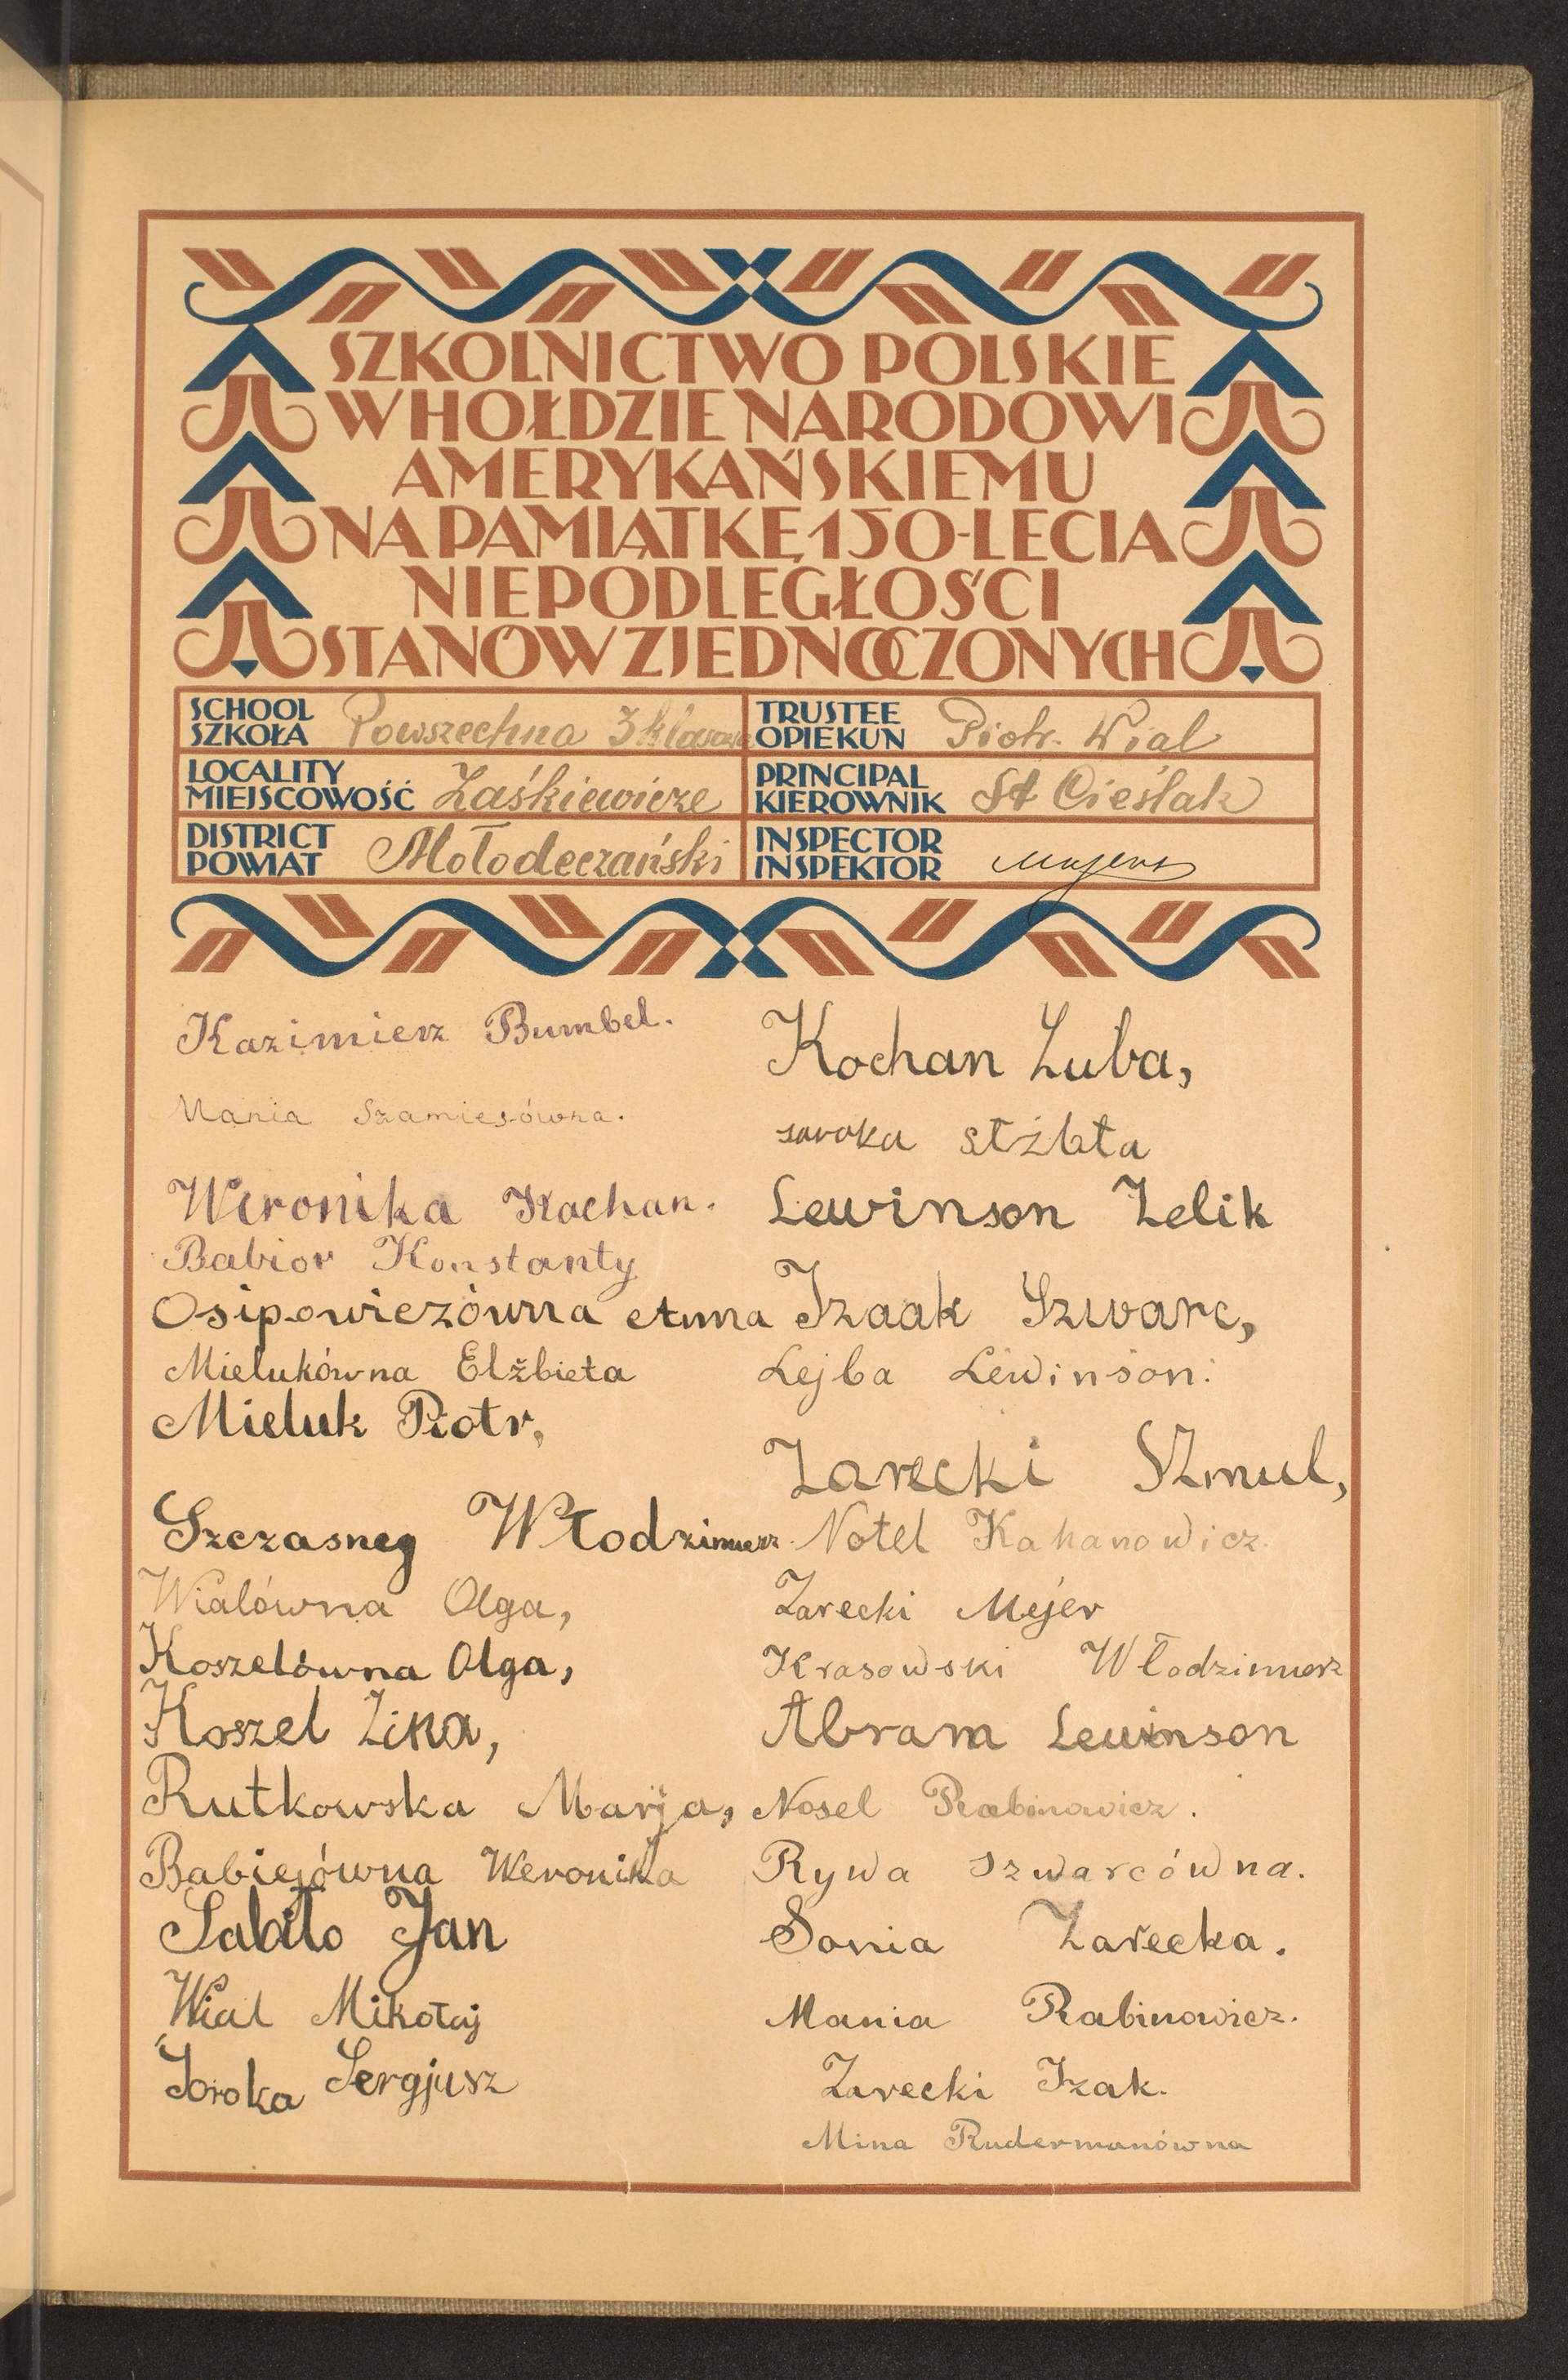 SZKOLNICTWO POLSKIE
W HOŁDZIE NARODOWI
AMERYKAŃSKIEMU
NA PAMIĄTKĘ 150-LECIA
NIEPODLEGŁOŚCI
STANÓW ZJEDNOCZONYCH
SCHOOL
SZKOŁA Powszechna 3 klasowa
TRUSTEE
OPIEKUN Piotr Wial
LOCALITY
MIEJSCOWOŚĆ Zaśkiewicze
PRINCIPAL
KIEROWNIK St Cieślak
DISTRICT
POWIAT Mołodeczański
INSPECTOR
INSPEKTOR
Kazimierz Bumbel.
Mania Szamiesówna.
Weronika Kochan.
Babior Konstanty
Osipowiczówna Anna
Mielukówna Elżbieta
Mieluk Piotr,
Szczasneg Włodzimierz
Wialówna Olga,
Koszelówna Olga,
Koszel Zina,
Rutkowska Marja,
Babiejówna Weronika
Sabiło Jan
Wial Mikołaj
Soroka Sergjusz
Kochan Luba,
soroka elżbta
Lewinson Zelik
Izaak Szwarc,
Lejba Lewinson.
Zarecki Szmul,
Notel Kahanowicz.
Zarecki Mejer
Krasowski Włodzimierz
Abram Lewinson
Nosel Rabinowicz.
Rywa Szwarcówna.
Sonia Zarecka.
Mania Rabinowicz.
Zarecki Izak.
Mina Rudermanówna